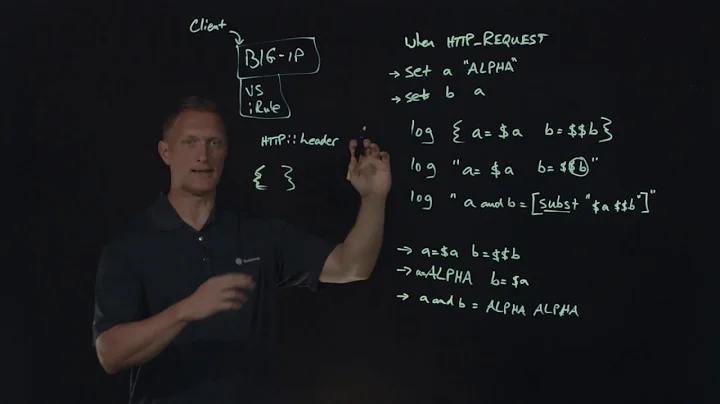 Client
BIG-IP
VS
iRule
HTTP::header
{ }
when HTTP_REQUEST
→ set a "ALPHA"
→ set b a
log { a= $a b= $$b}
log "a= $a b= $$b"
log " a and b = [subst "$a $$b"]"
→ a=$a b=$$b
→ a=ALPHA b=$a
→ a and b = ALPHA ALPHA